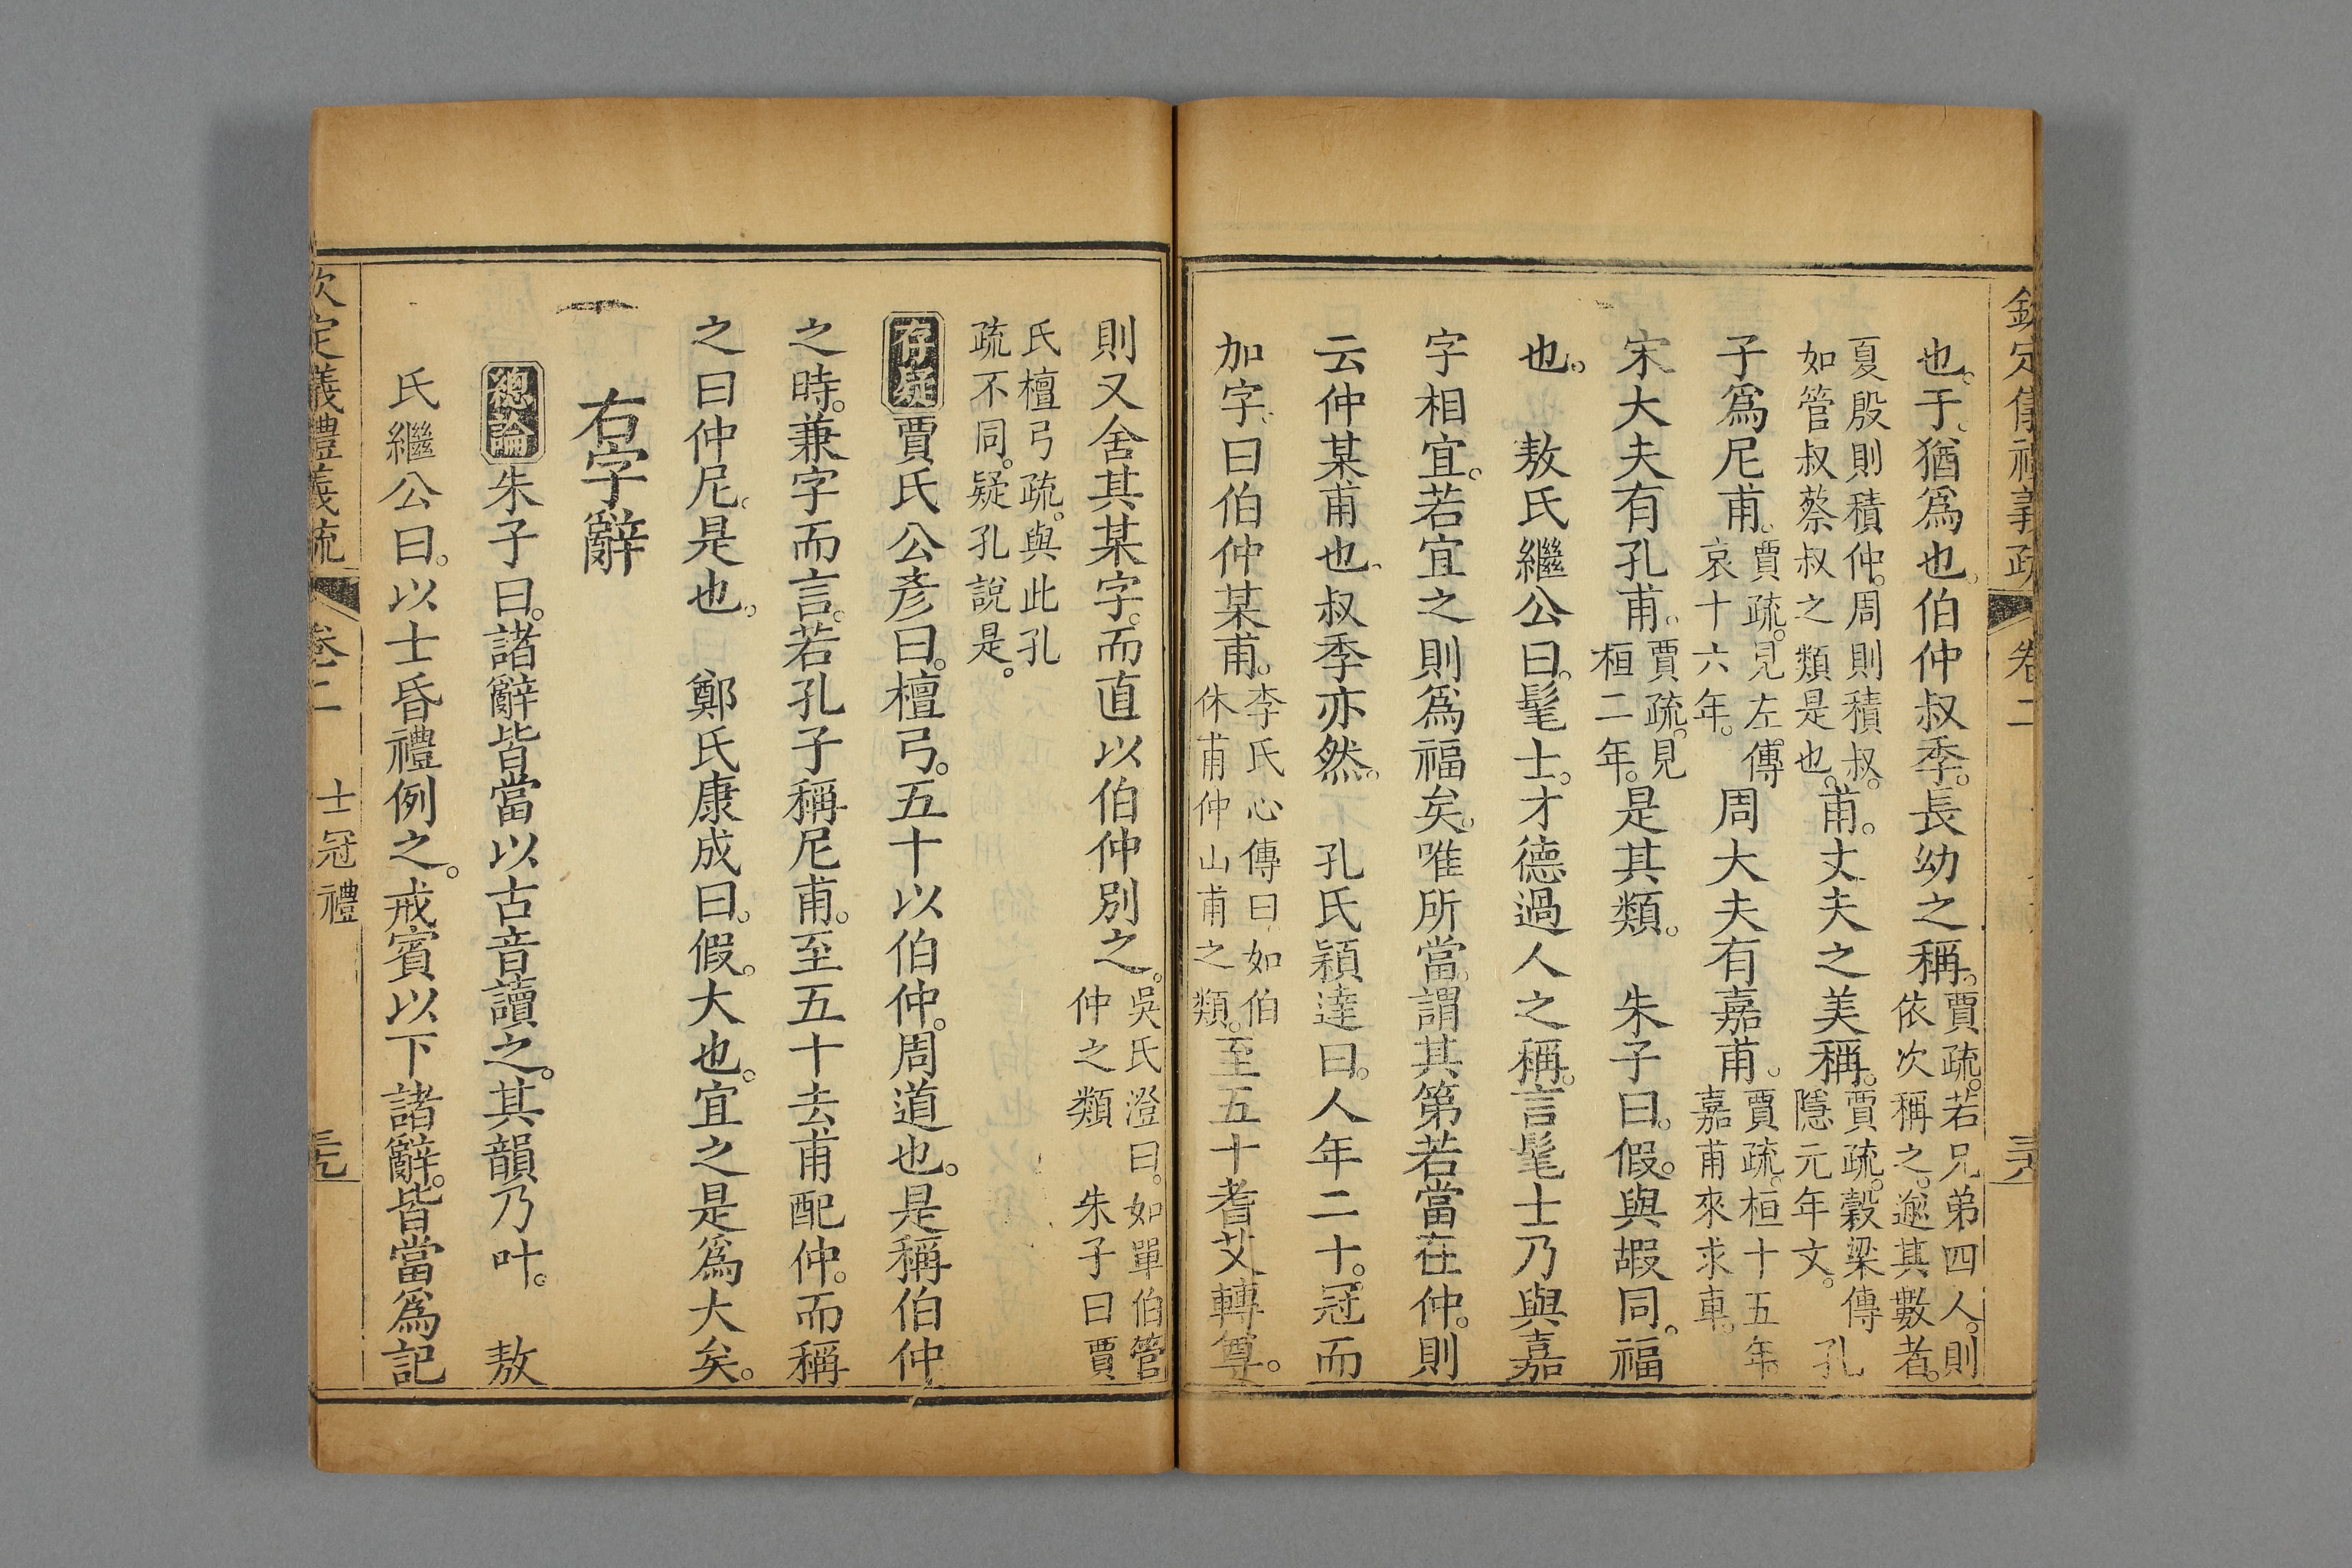 欽定儀禮義疏 卷二 三八
也。于、猶爲也。伯仲叔季。長幼之稱。賈疏。若兄弟四人。則依次稱之。遞其數者。
夏殷則積仲。周則積叔。如管叔蔡叔之類是也。甫。丈夫之美稱。賈疏。穀梁傳隱元年文。 孔
子爲尼甫。賈疏。見左傳哀十六年。 周大夫有嘉甫。賈疏。桓十五年嘉甫來求車。
宋大夫有孔甫。賈疏。見桓二年。是其類。 朱子曰。假。與嘏同。福
也。 敖氏繼公曰。髦士。才德過人之稱。言髦士乃與嘉
字相宜。若宜之則爲福矣。唯所當。謂其第若當在仲。則
云仲某甫也。叔季亦然。 孔氏穎達曰。人年二十。冠而
加字。曰伯仲某甫。李氏心傳曰如伯休甫仲山甫之類。至五十耆艾轉尊。
則又舍其某字。而直以伯仲別之。吳氏澄曰。如單伯管仲之類 朱子曰賈
氏檀弓疏。與此孔疏不同。疑孔說是。
存疑賈氏公彥曰。檀弓。五十以伯仲。周道也。是稱伯仲
之時。兼字而言。若孔子稱尼甫。至五十去甫配仲。而稱
之曰仲尼。是也。 鄭氏康成曰。假。大也。宜之是爲大矣。
右字辭
總論朱子曰。諸辭皆當以古音讀之。其韻乃叶。 敖
氏繼公曰。以士昏禮例之。戒賓以下諸辭。皆當爲記
欽定儀禮義疏 卷二 士冠禮 三九